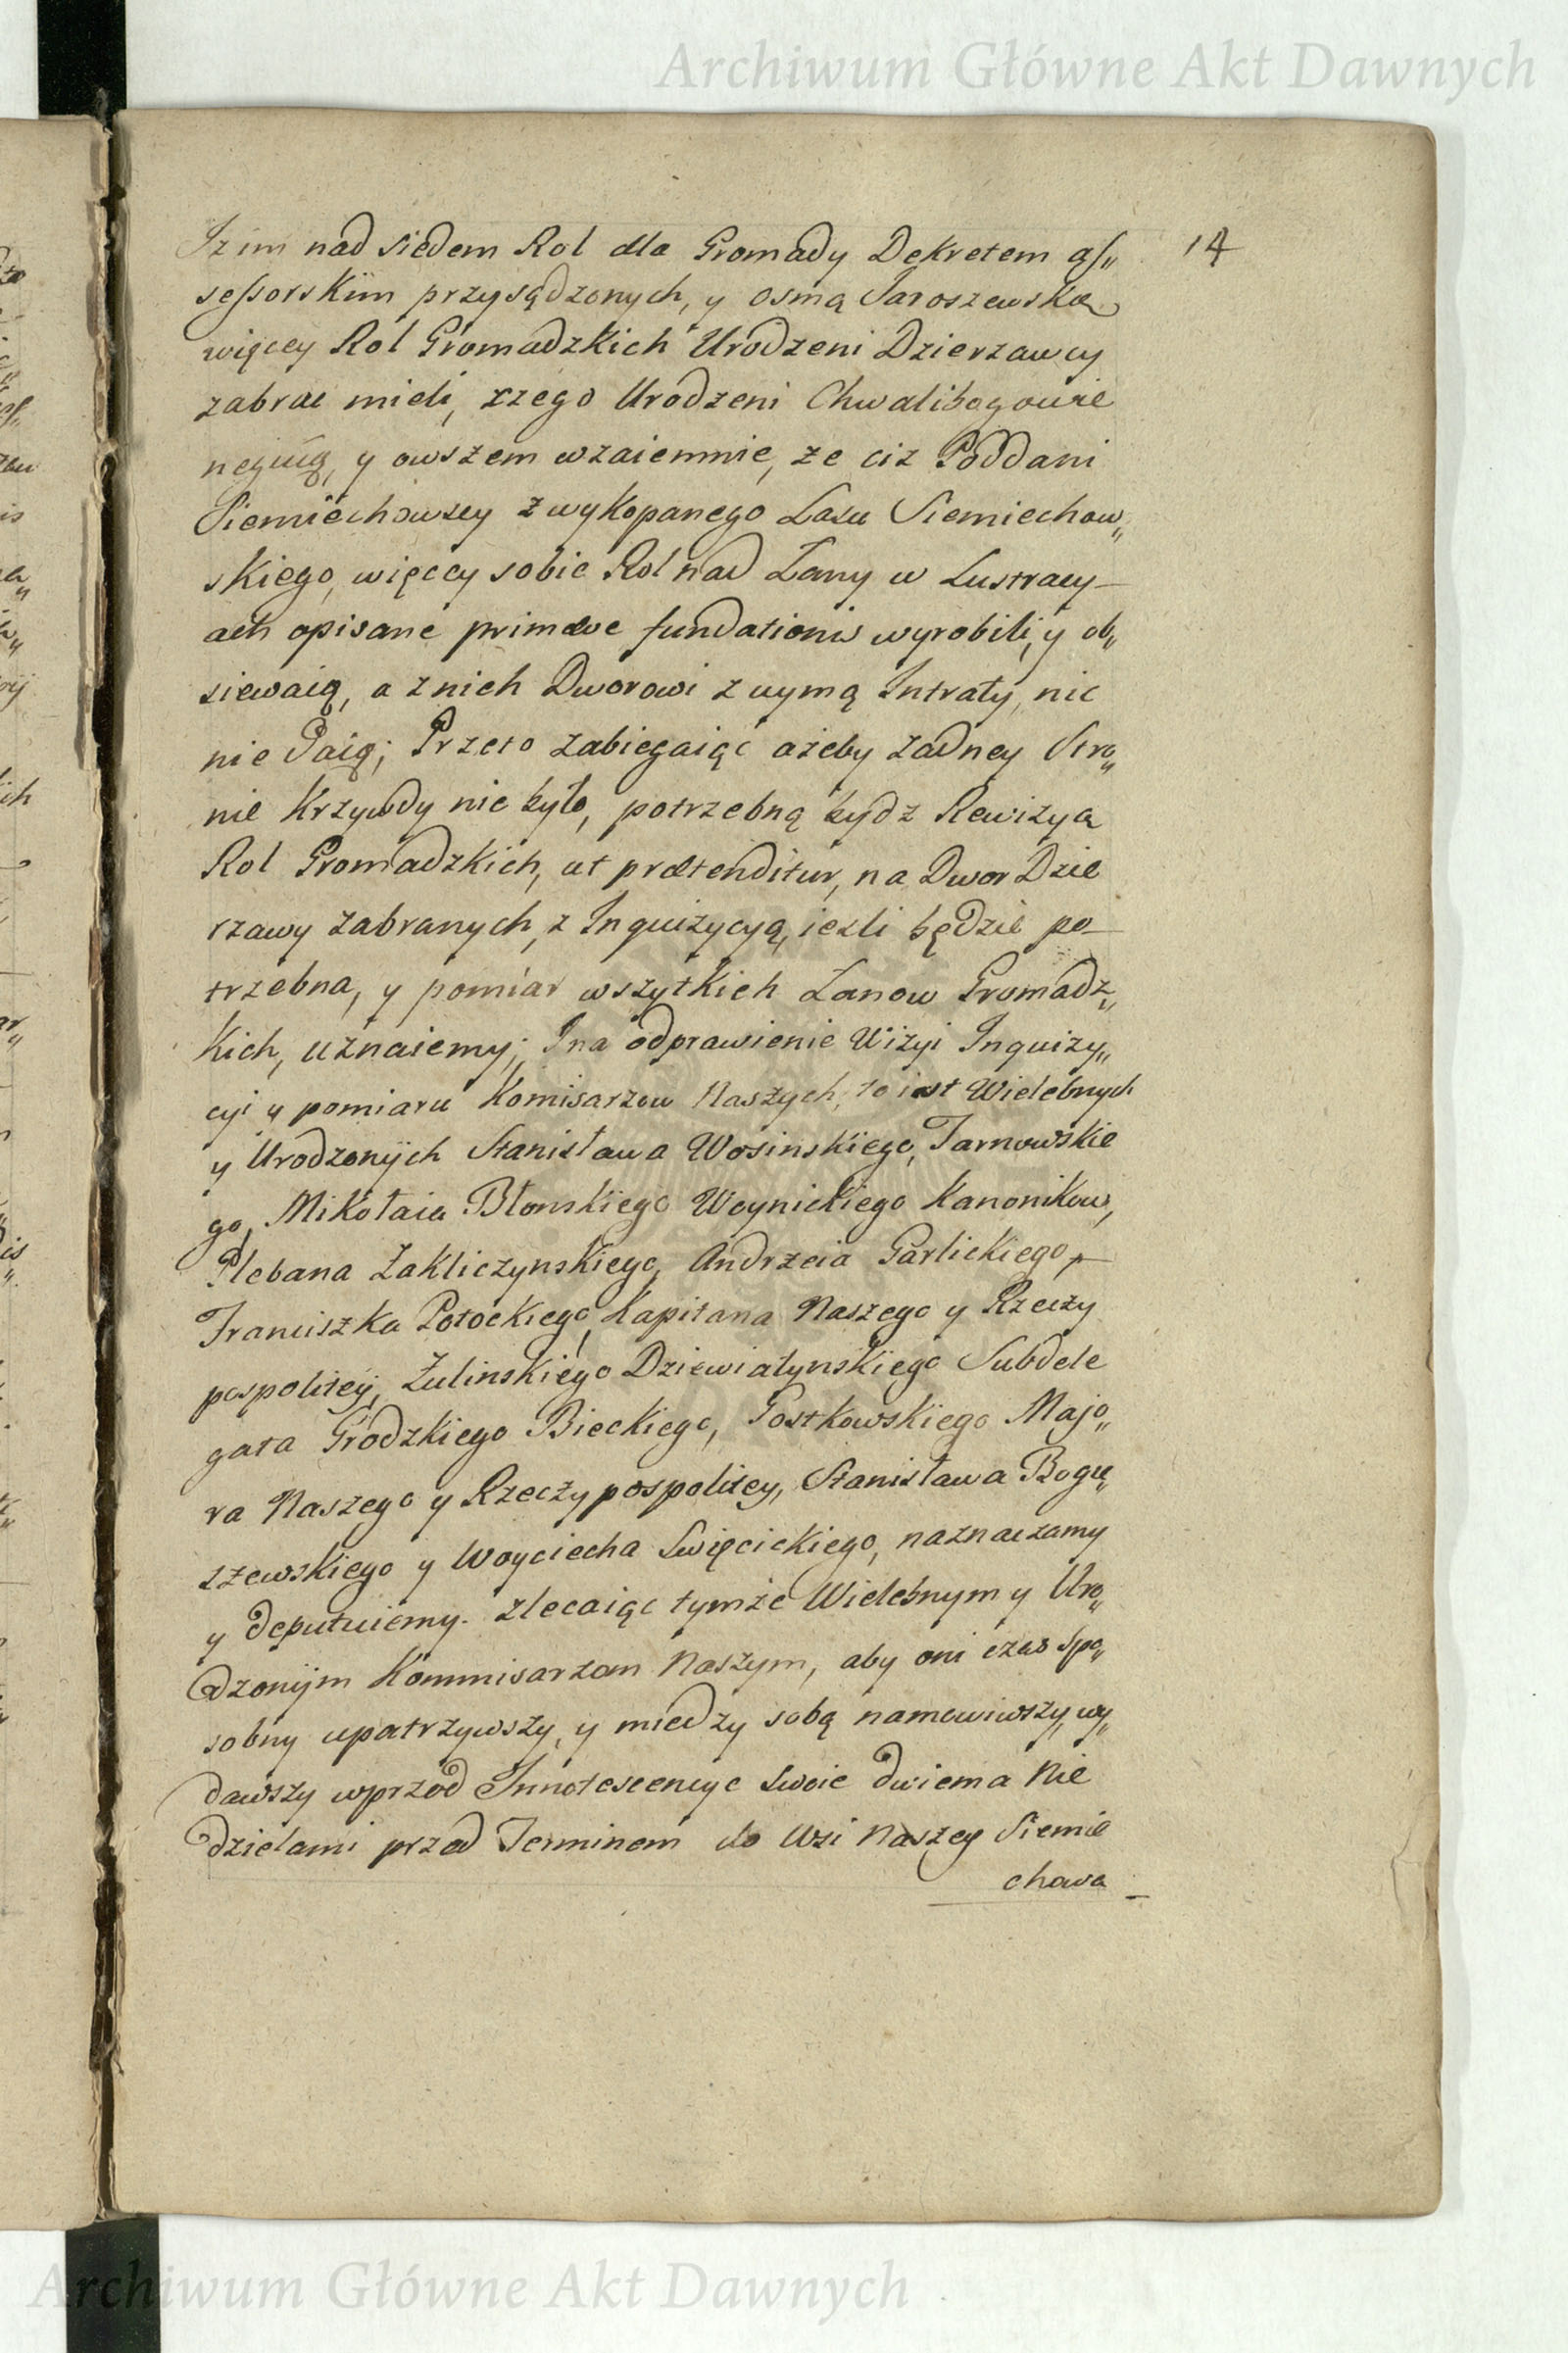 Archiwum Główne Akt Dawnych
14
Iz im nad siedem Rol dla Gromady Dekretem as„
sessorskim przysądzonych, y osmą Jaroszewską
więcey Rol Gromadzkich Urodzeni Dzierzawcy
zabrac mieli, czego Urodzeni Chwalibogowie
neguią, y owszem wzaiemnie, że ciż Poddani
Siemiechowscy z wykopanego Lasu Siemiechow„
skiego, więcey sobie Rol nad Łany w Lustracy
ach opisane primæve fundationis wyrobili, y ob„
siewaią, a z nich Dworowi z uymą Intraty, nic
nie Daią; Przeto zabiegaiąc ażeby żadney Stro„
nie Krzywdy nie było, potrzebną bydz Rewizyą
Rol Gromadzkich, ut prætenditur, na Dwor Dzie
rzawy zabranych, z Inquizycyą, iezli będzie po
trzebna, y pomiar wszytkich Łanow Gromadz„
kich, uznaiemy; I na odprawienie Wizyi Inquizy„
cyi y pomiaru Komisarzow Naszych, to iest Wielebnych
y Urodzonych Stanisława Wosinskiego, Tarnowskie
go, Mikołaia Błonskiego Woynickiego Kanonikow,
Plebana Zakliczynskiego, Andrzeia Garlickiego,
Franciszka Potockiego, Kapitana Naszego y Rzeczy
pospolitey, Żulinskiego Dziewiatynskiego Subdele
gata Grodzkiego Bieckiego, Gostkowskiego Majo„
ra Naszego y Rzeczypospolitey, Stanisława Bogu„
szewskiego y Woyciecha Swięcickiego, naznaczamy
y deputuiemy. Zlecaiąc tymże Wielebnym y Uro„
dzonym Kommisarzom Naszym, aby oni czas spo„
sobny upatrzywszy, y miedzy sobą namowiwszy, wy„
dawszy wprzod Innotescencye swoie dwiema Nie
dzielami przed Terminem do Wsi Naszey Siemie
chowa
Archiwum Główne Akt Dawnych